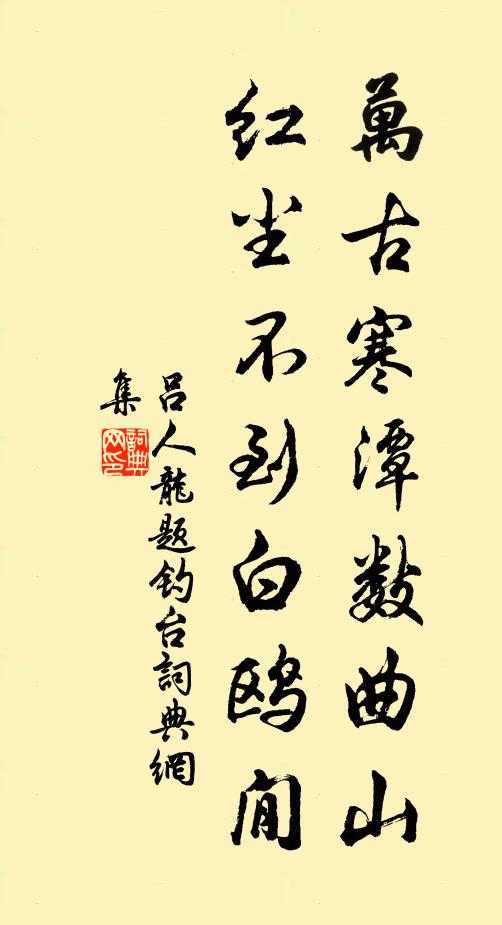 萬古寒潭數曲山
红尘不到白鸥閒
吕人龍题钓台詞典網
集
詞典网印